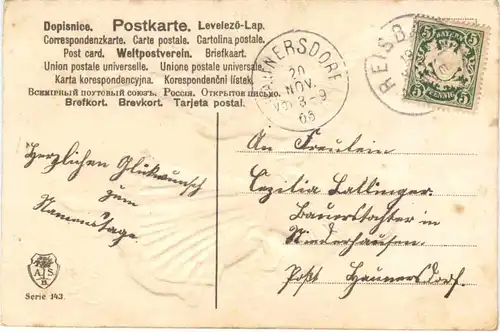 Dopisnice. Postkarte. Levelező-Lap.
Correspondenzkarte. Carte postale. Cartolina postale.
Post card. Weltpostverein. Briefkaart.
Union postale universelle. Unione postale universale.
Karta korespondencyjna. Korespondenční lístek.
Всемирный почтовый союзъ. Россія. Открытое письмо.
Brefkort. Brevkort. Tarjeta postal.
HAUNERSDORF
20
NOV.
8-9
06
REISBA
BAYERN
5 5
5 5
PFENNIG
Herzlichen Glückwunsch
zum
Namenstage
An Fräulein
Cezilia Lattinger
Bauerstochter in
Niederhausen.
Post Haunersdorf.
A S
B
Serie 143.